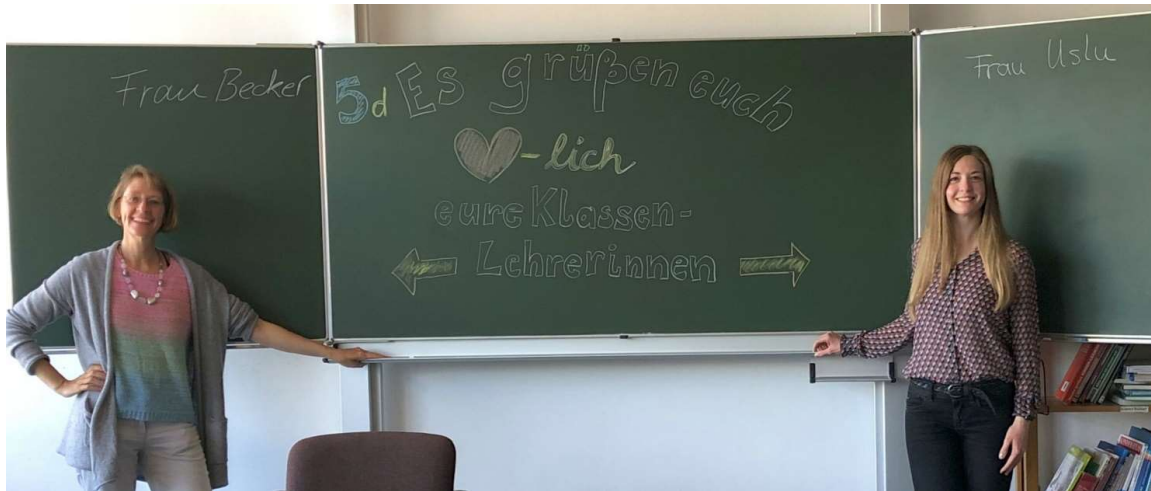 Frau Becker
5d Es grüßen euch
-lich
eure Klassen-
Lehrerinnen
Frau Uslu